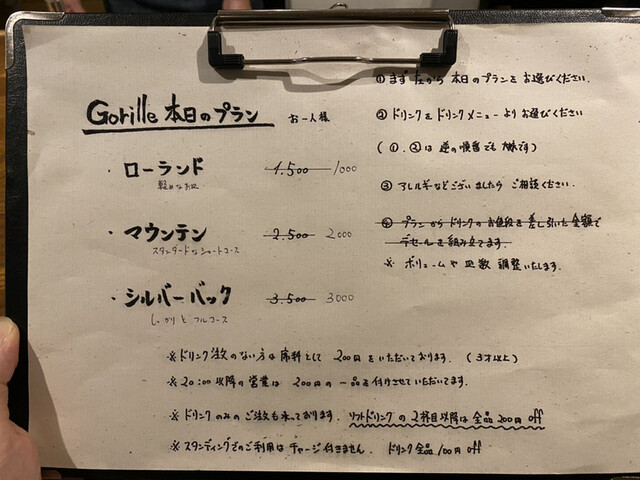 Gorille 本日のプラン お一人様
・ローランド 1.500 1000
軽めなお皿
・マウンテン 2.500 2000
スタンダードなショートコース
・シルバーバック 3.500 3000
しっかりと フルコース
① まず 左から 本日のプランを お選びください.
② ドリンクを ドリンクメニュー よりお選びください
(①. ②は 逆の順番でも 大丈夫です)
③ アレルギーなどございましたら ご相談ください.
④ プランからドリンクのお値段を差し引いた金額で
デセールを組み立てます.
※ ボリュームや 皿数 調整いたします.
※ドリンク注文のない方は 席料として 200円をいただいております. (3才以上)
※20:00以降の営業は 200円の一品を付けさせていただいてます.
※ドリンクのみのご注文も承っております. ソフトドリンクの2杯目以降は全品200円off
※スタンディングでのご利用は チャージ付きません. ドリンク全品100円off